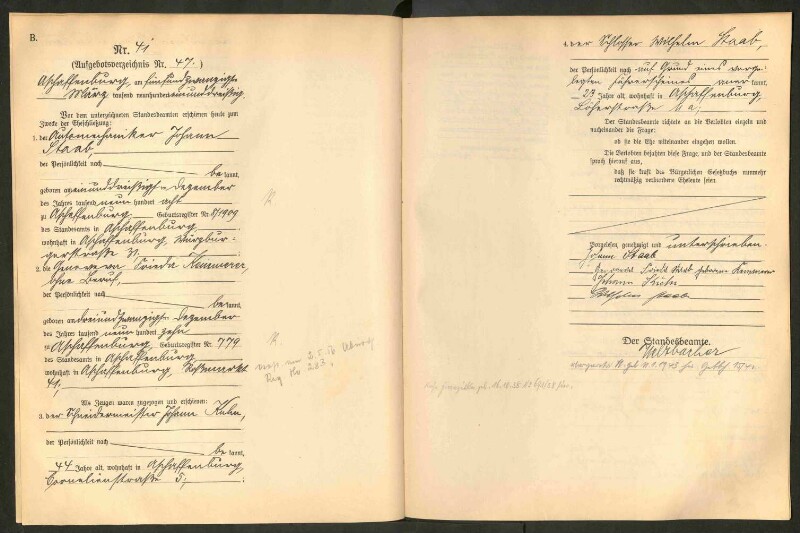 B.
Nr. 41
(Aufgebotsverzeichnis Nr. 47.)
Aschaffenburg, am fünfundzwanzigsten
März tausend neunhundert einunddreißig.
Vor dem unterzeichneten Standesbeamten erschienen heute zum
Zwecke der Eheschließung:
1. der Automechaniker Johann
Staab,
der Persönlichkeit nach
be kannt,
geboren am einunddreißigsten Dezember
des Jahres tausend neun hundert acht
zu Aschaffenburg, Geburtsregister Nr. 8/1909
des Standesamts in Aschaffenburg,
wohnhaft in Aschaffenburg, Würzbur-
gerstraße 31.
2. die Genoveva Frieda Kemmerer,
ohne Beruf,
der Persönlichkeit nach
be kannt,
geboren am dreiundzwanzigsten Dezember
des Jahres tausend neun hundert zehn
zu Aschaffenburg, Geburtsregister Nr. 779
des Standesamts in Aschaffenburg,
wohnhaft in Aschaffenburg, Roßmarkt
41;
Als Zeugen waren zugezogen und erschienen:
3. der Schneidermeister Johann Kuhn,
der Persönlichkeit nach
be kannt,
44 Jahre alt, wohnhaft in Aschaffenburg,
Cornelienstraße 5;
4. der Schlosser Wilhelm Staab,
der Persönlichkeit nach auf Grund eines vorge-
legten Führerscheines aner kannt,
23 Jahre alt, wohnhaft in Aschaffenburg,
Löherstraße 11a;
Der Standesbeamte richtete an die Verlobten einzeln und
nacheinander die Frage:
ob sie die Ehe miteinander eingehen wollen.
Die Verlobten bejahten diese Frage, und der Standesbeamte
sprach hierauf aus,
daß sie kraft des Bürgerlichen Gesetzbuchs nunmehr
rechtmäßig verbundene Eheleute seien.
Vorgelesen, genehmigt und unterschrieben
Johann Staab
Genoveva Frieda Staab geborene Kemmerer
Johann Kuhn
Wilhelm Staab
Der Standesbeamte.